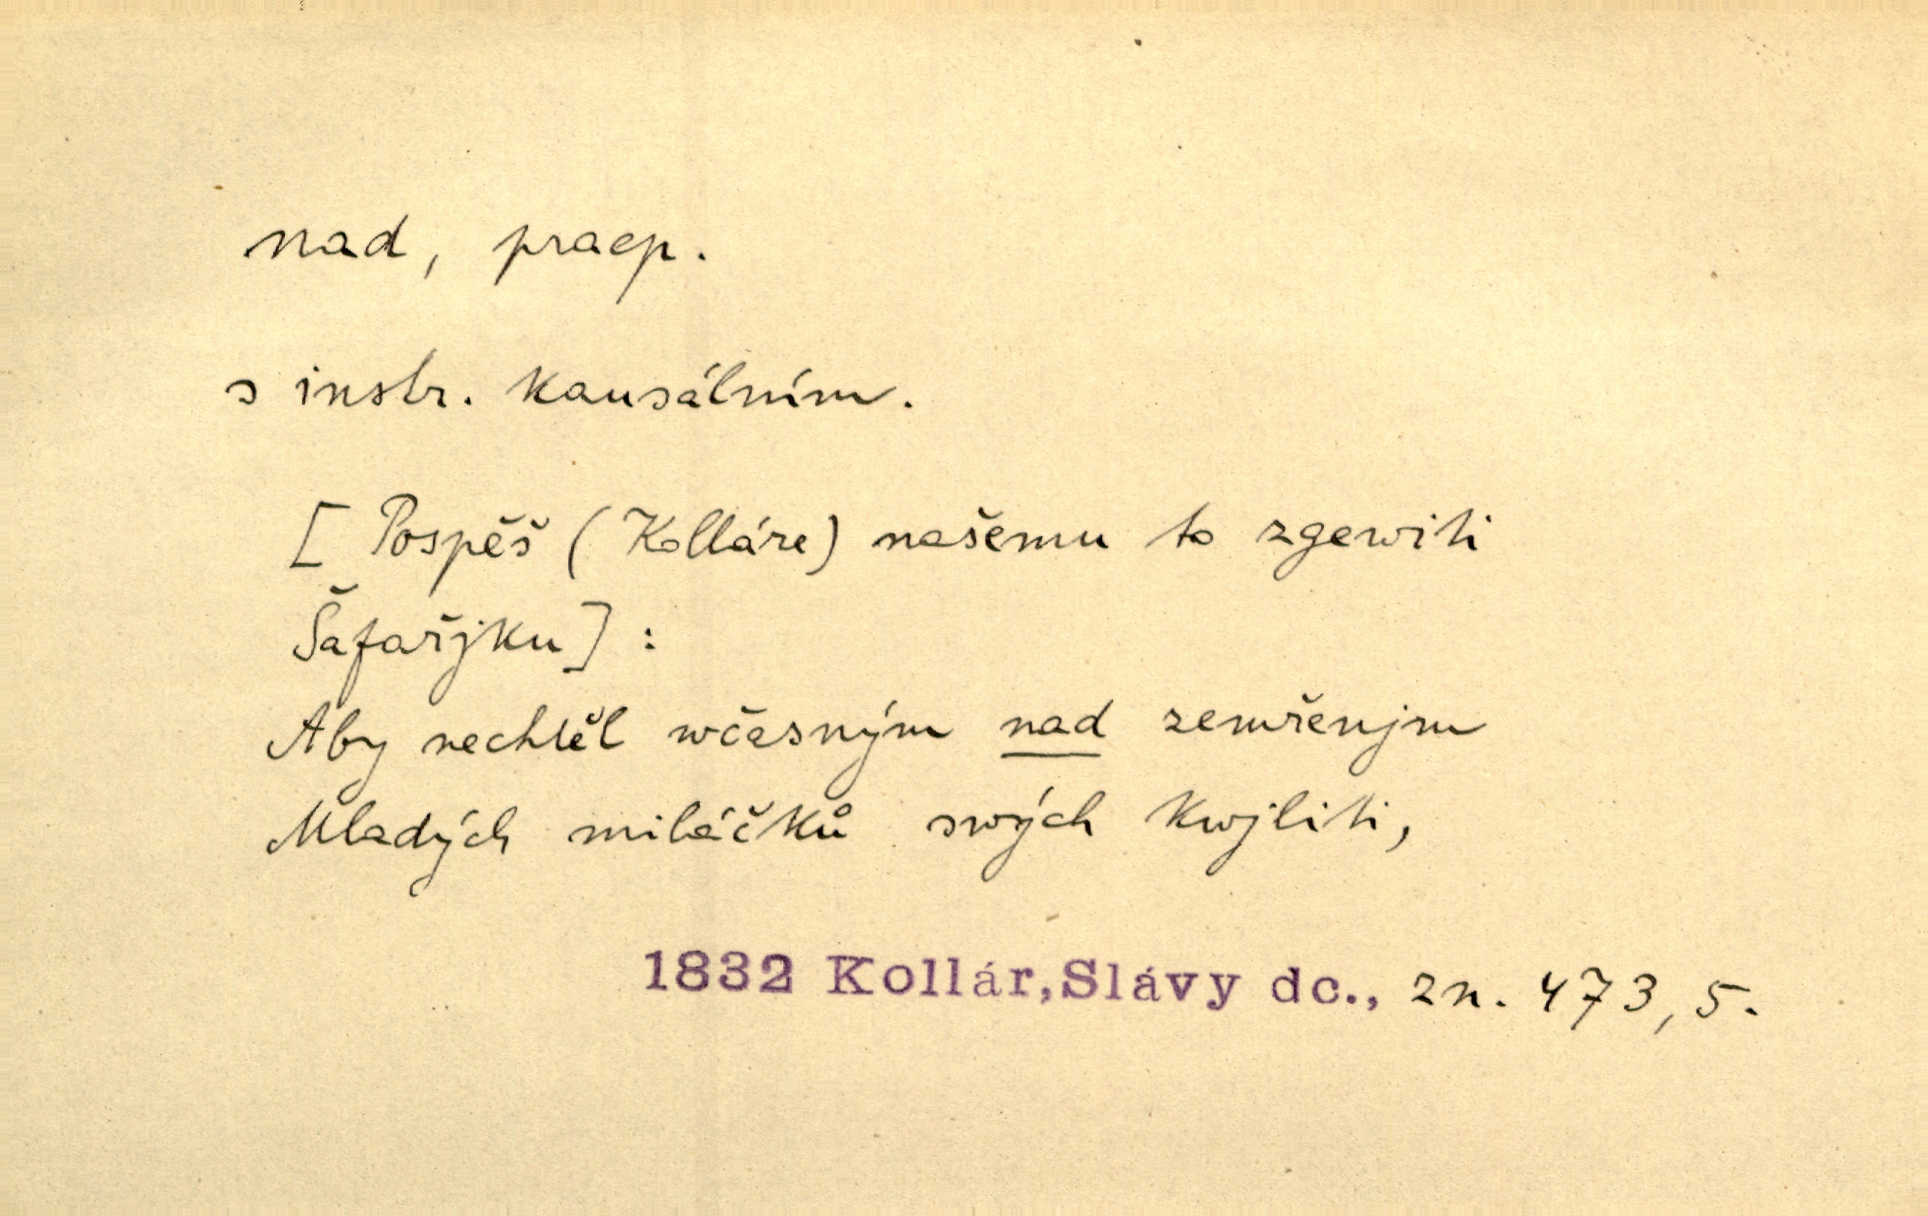 nad, praep.
s instr. kausálním.
[Pospěš (Kolláre) našemu to zgewiti
Šafařjku]:
Aby nechtěl wčasným nad zemřenjm
Mladých miláčků swých kwjliti,
1832 Kollár,Slávy dc., zn. 473,5.